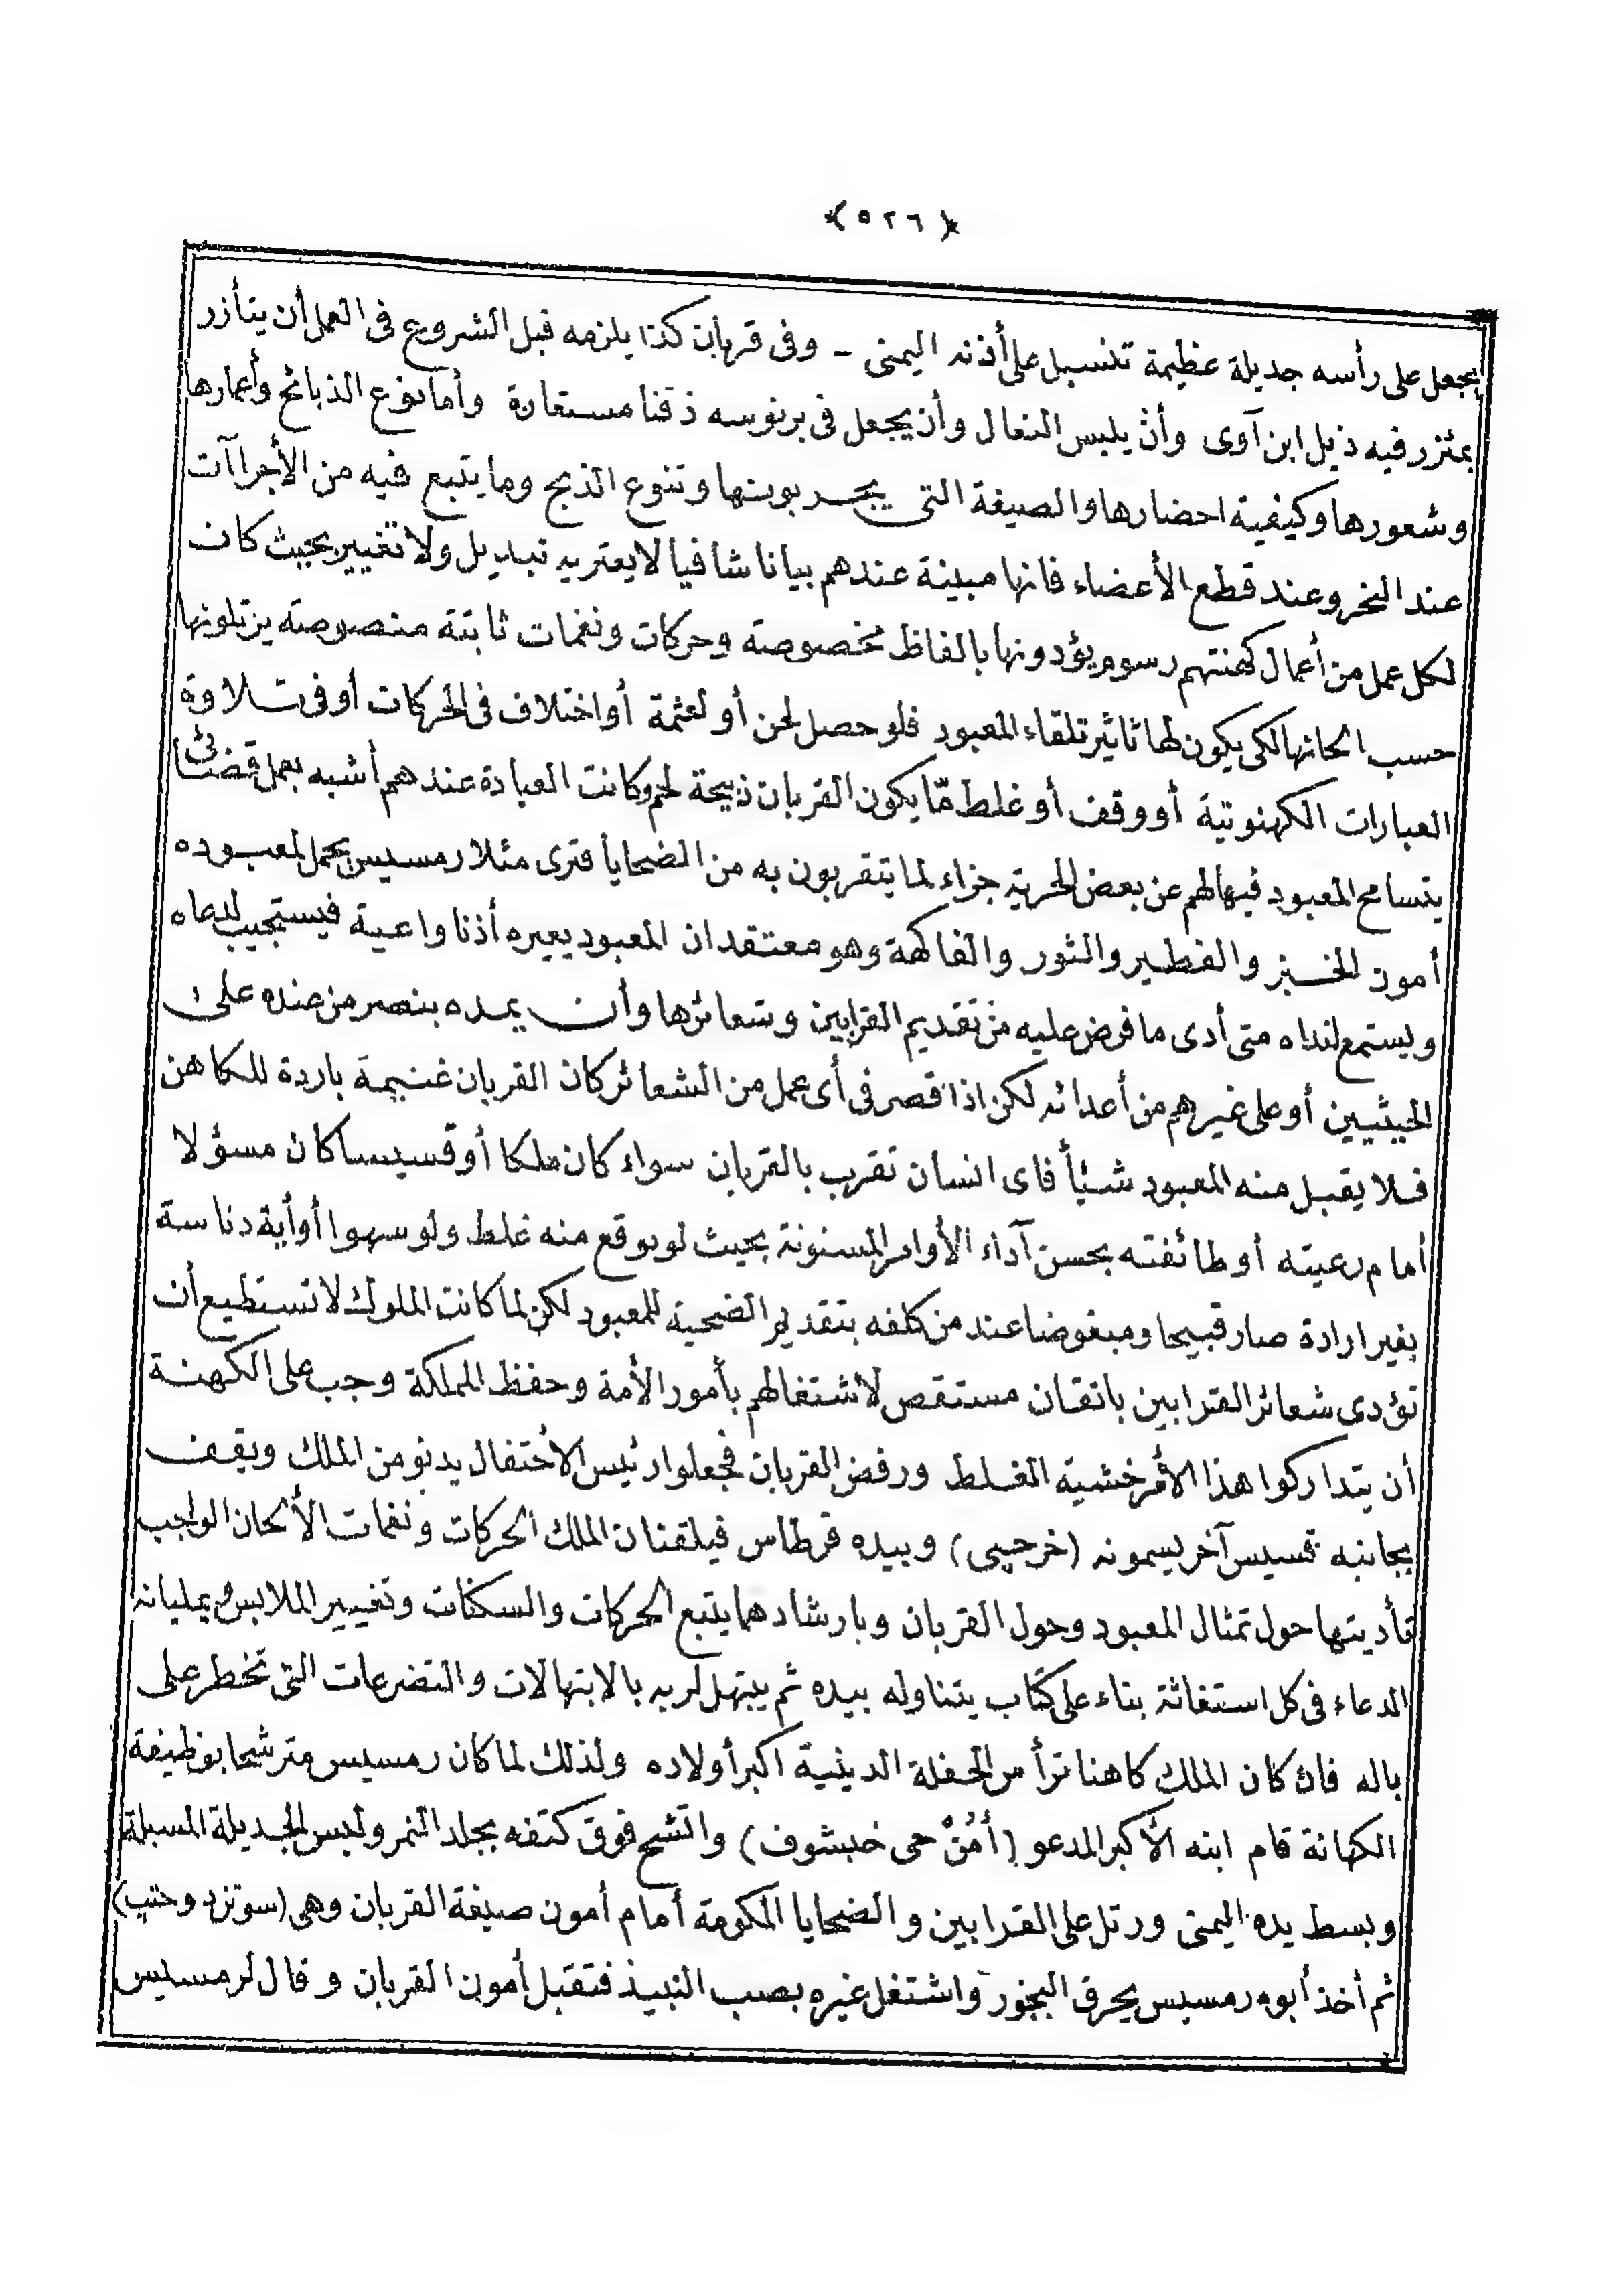 ﴿٥٢٦﴾
يجعل على رأسه جديلة عظيمة تنسبل على أذنه اليمنى – وفى قربان كذا يلزمه قبل الشروع فى العمل أن يتأزر
بمئزر فيه ذيل ابن آوى وأن يلبس النعال وأن يجعل فى برنوسه ذقنا مستعارة وأما نوع الذبائح وأعمارها
وشعورها وكيفية احضارها والصيغة التى يجر بونها وتنوع الذبح وما يتبع فيه من الأجراآت
عند النحر وعند قطع الأعضاء فانها مبينة عندهم بيانا شافيا لا يعتريه تبديل ولا تغيير بحيث كان
لكل عمل من أعمال كهنتهم رسوم يؤدونها بالفاظ مخصوصة وحركات ونغمات ثابتة منصوصة يرتلونها
حسب الحانها لكى يكون لها تاثير تلقاء المعبود فلو حصل لحن أو لعثمة أو اختلاف فى الحركات أو فى تلاوة
العبارات الكهنوتية أو وقف أو غلط مّا يكون القربان ذبيحة لحم وكانت العبادة عندهم أشبه بعمل قضائى
يتسامح المعبود فيها لهم عن بعض الحرية جزاء لما يتقربون به من الضحايا فترى مثلا رمسيس يحمل لمعبوده
أمون للخبز والفطير والثور والفاكهة وهو معتقد ان المعبود يعيره أذنا واعية فيستجيب لدعاه
ويستمع لنداه متى أدى ما فرض عليه من تقديم القرابين وشعائرها وأن يمده بنصر من عنده على
الحيثيين أو على غيرهم من أعدائه لكن اذا قصر فى أى عمل من الشعائر كان القربان غنيمة باردة للكاهن
فلا يقبل منه المعبود شيأ فاى انسان تقرب بالقربان سواء كان ملكا أو قسيسا كان مسؤلا
أمام رعيته أو طائفته بحسن آداء الأوامر المسنونة بحيث لو يوقع منه غلط ولو سهوا أو أية دناسة
بغير ارادة صار قبيحا ومبغوضا عند من كلفه بتقديم الضحية للمعبود لكن لما كانت الملوك لا تستطيع أن
تؤدى شعائر القرابين باتقان مستقص لاشتغالهم بأمور الأمة وحفظ المملكة وجب على الكهنة
أن يتداركوا هذا الأمر خشية الغلط ورفض القربان فجعلوا رئيس الاحتفال يدنو من الملك ويقف
بجانبه قسيس آخر يسمونه (خرحبى) وبيده قرطاس فيلقنان الملك الحركات ونغمات الألحان الواجب
تأديتها حول تمثال المعبود وحول القربان وبارشادهما يتبع الحركات والسكنات وتغيير الملابس ويمليانه
الدعاء فى كل استغاثة بناء على كتاب يتناوله بيده ثم يبتهل لربه بالابتهالات والتضرعات التى تخطر على
باله فان كان الملك كاهنا ترأس الحفلة الدينية اكبر أولاده ولذلك لما كان رمسيس مترشحا بوظيفة
الكهانة قام ابنه الأكبر المدعو (أمُنْ حى خبشوف) واتشح فوق كتفه بجلد النمر ولبس الجديلة المسبلة
وبسط يده اليمنى ورتل على القرابين والضحايا المكومة أمام أمون صيغة القربان وهى (سوتزد وحتب)
ثم أخذ أبوه رمسيس يحرق البخور واشتغل غيره بصب النبيذ فتقبل أمون القربان وقال لرمسيس